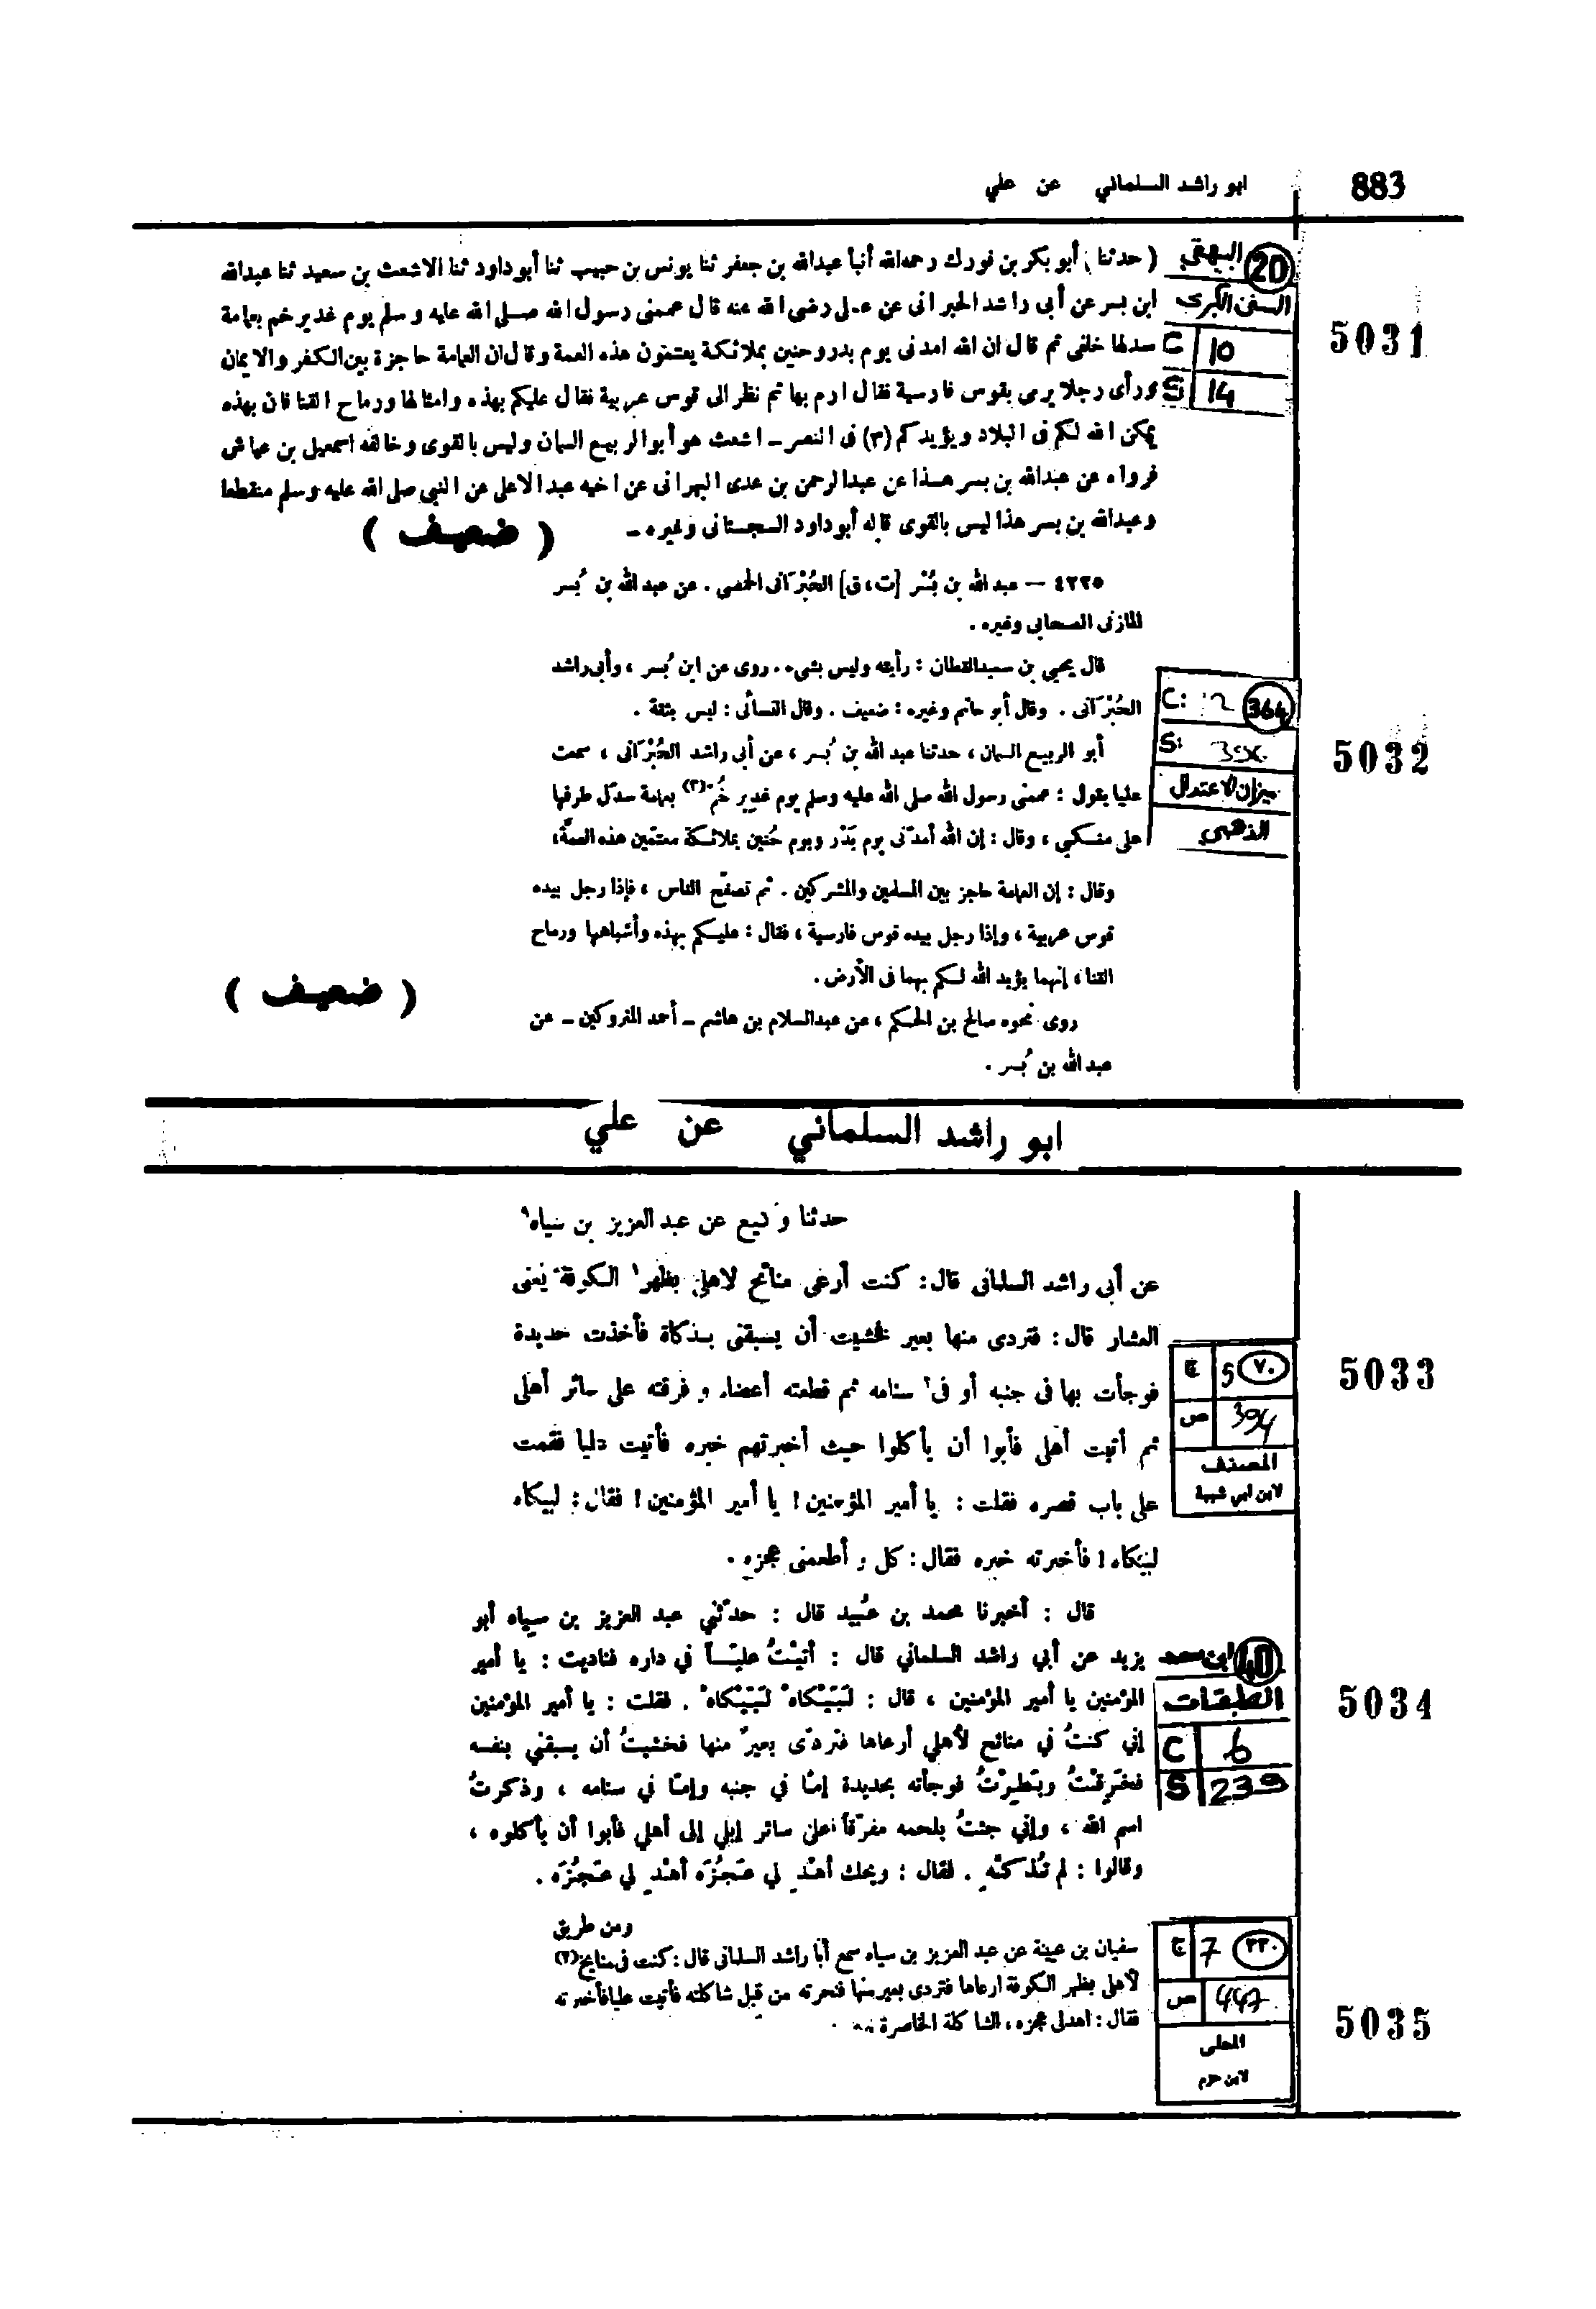 883
ابو راشد السلماني عن علي
5031
20 البيهقي
السنن الكبرى
C 10
S: 14
( حدثنا ) أبو بكر بن فورك رحمه الله أنبأ عبدالله بن جعفر ثنا يونس بن حبيب ثنا أبو داود ثنا الاشعث بن سعيد ثنا عبدالله
ابن بسر عن أبي راشد الحبراني عن علي رضي الله عنه قال عممني رسول الله صلى الله عليه وسلم يوم غدير خم بعمامة
سدلها خلفي ثم قال ان الله امدني يوم بدر وحنين بملائكة يعتمون هذه العمة وقال ان العمامة حاجزة بين الكفر والايمان
ورأى رجلا يرمي بقوس فارسية فقال ارم بها ثم نظر الى قوس عربية فقال عليكم بهذه وامثالها ورماح القنا فان بهذه
يمكن الله لكم في البلاد ويؤيدكم (٣) في النصر ـ اشعث هو أبو الربيع السمان وليس بالقوى وخالفه اسمعيل بن عياش
فرواه عن عبدالله بن بسر هذا عن عبدالرحمن بن عدى البهراني عن اخيه عبد الاعلى عن النبي صلى الله عليه وسلم منقطعا
وعبدالله بن بسر هذا ليس بالقوى قاله أبو داود السجستاني وغيره ـ
( ضعيف )
5032
364 C: 2
S:
ميزان الاعتدال
الذهبي
٤٢٢٥ — عبد الله بن بُسْر [ت، ق] الحُبْرَانى الحمصى . عن عبد الله بن بُسر
المازنى الصحابى وغيره .
قال يحيى بن سعيد القطان : رأيته وليس بشىء . روى عن ابن بُسر ، وأبى راشد
الحُبْرَانى . وقال أبو حاتم وغيره : ضعيف . وقال النسائى : ليس بثقة .
أبو الربيع السمان ، حدثنا عبد الله بن بُسر ، عن أبى راشد الحُبْرَانى ، سمعت
عليا يقول : عممنى رسول الله صلى الله عليه وسلم يوم غدير خُم (٣) بعمامة سدل طرفها
على منكبى ، وقال : إن الله أمدّنى يوم بَدْر ويوم حُنين بملائكة معتمّين هذه العمّة ،
وقال : إن العمامة حاجز بين المسلمين والمشركين . ثم تصفّح الناس ، فإذا رجل بيده
قوس عربية ، وإذا رجل بيده قوس فارسية ، فقال : عليكم بهذه وأشباهها ورماح
القنا ، إنهما يؤيد الله لكم بهما فى الأرض .
( ضعيف )
روى نحوه صالح بن الحكم ، عن عبدالسلام بن هاشم ـ أحد المتروكين ـ عن
عبد الله بن بُسر .
ابو راشد السلماني عن علي
5033
٧٠ 5 ج
394 ص
المصنف
لابن ابي شيبة
حدثنا وكيع عن عبد العزيز بن سياه
عن أبى راشد السلمانى قال : كنت أرعى منائح لاهلى بظهر الكوفة يعنى
العشار قال : فتردى منها بعير فخشيت أن يسبقنى بذكاة فأخذت حديدة
فوجأت بها فى جنبه أو فى سنامه ثم قطعته أعضاء وفرقته على سائر أهلى
ثم أتيت أهلى فأبوا أن يأكلوا حيث أخبرتهم خبره فأتيت عليا فقمت
على باب قصره فقلت : يا أمير المؤمنين ! يا أمير المؤمنين ! فقال : لبيكاه
لبيكاه ! فأخبرته خبره فقال : كل و أطعمنى عجزه .
5034
40 ابن سعد
الطبقات
C 6
S 239
قال : أخبرنا محمد بن عُبيد قال : حدّثني عبد العزيز بن سياه أبو
يزيد عن أبي راشد السلماني قال : أتيْتُ عليّاً في داره فناديت : يا أمير
المؤمنين يا أمير المؤمنين ، قال : لَبّيْكاهْ لَبّيْكاهْ . فقلت : يا أمير المؤمنين
إني كنتُ في منائح لأهلي أرعاها فتردّى بعيرٌ منها فخشيتُ أن يسبقني بنفسه
فوجأته بحديدة إمّا في جنبه وإمّا في سنامه ، وذكرتُ
اسم الله ، وإني جئتُ بلحمه مفرّقاً على سائر إبلي إلى أهلي فأبوا أن يأكلوه ،
وقالوا : لم تُذَكّه . فقال : ويحك أهْدِ لي عَجُزَه أهْدِ لي عَجُزَه .
5035
٢٣٠ 7 ج
447 ص
المحلى
لابن حزم
ومن طريق
سفيان بن عيينة عن عبد العزيز بن سياه سمع أبا راشد السلمانى قال : كنت فى منايح (٢)
لأهلى بظهر الكوفة ارعاها فتردى بعير منها فنحرته من قبل شاكلته فأتيت عليا فأخبرته
فقال : اهد لى عجزه ، الشاكلة الخاصرة